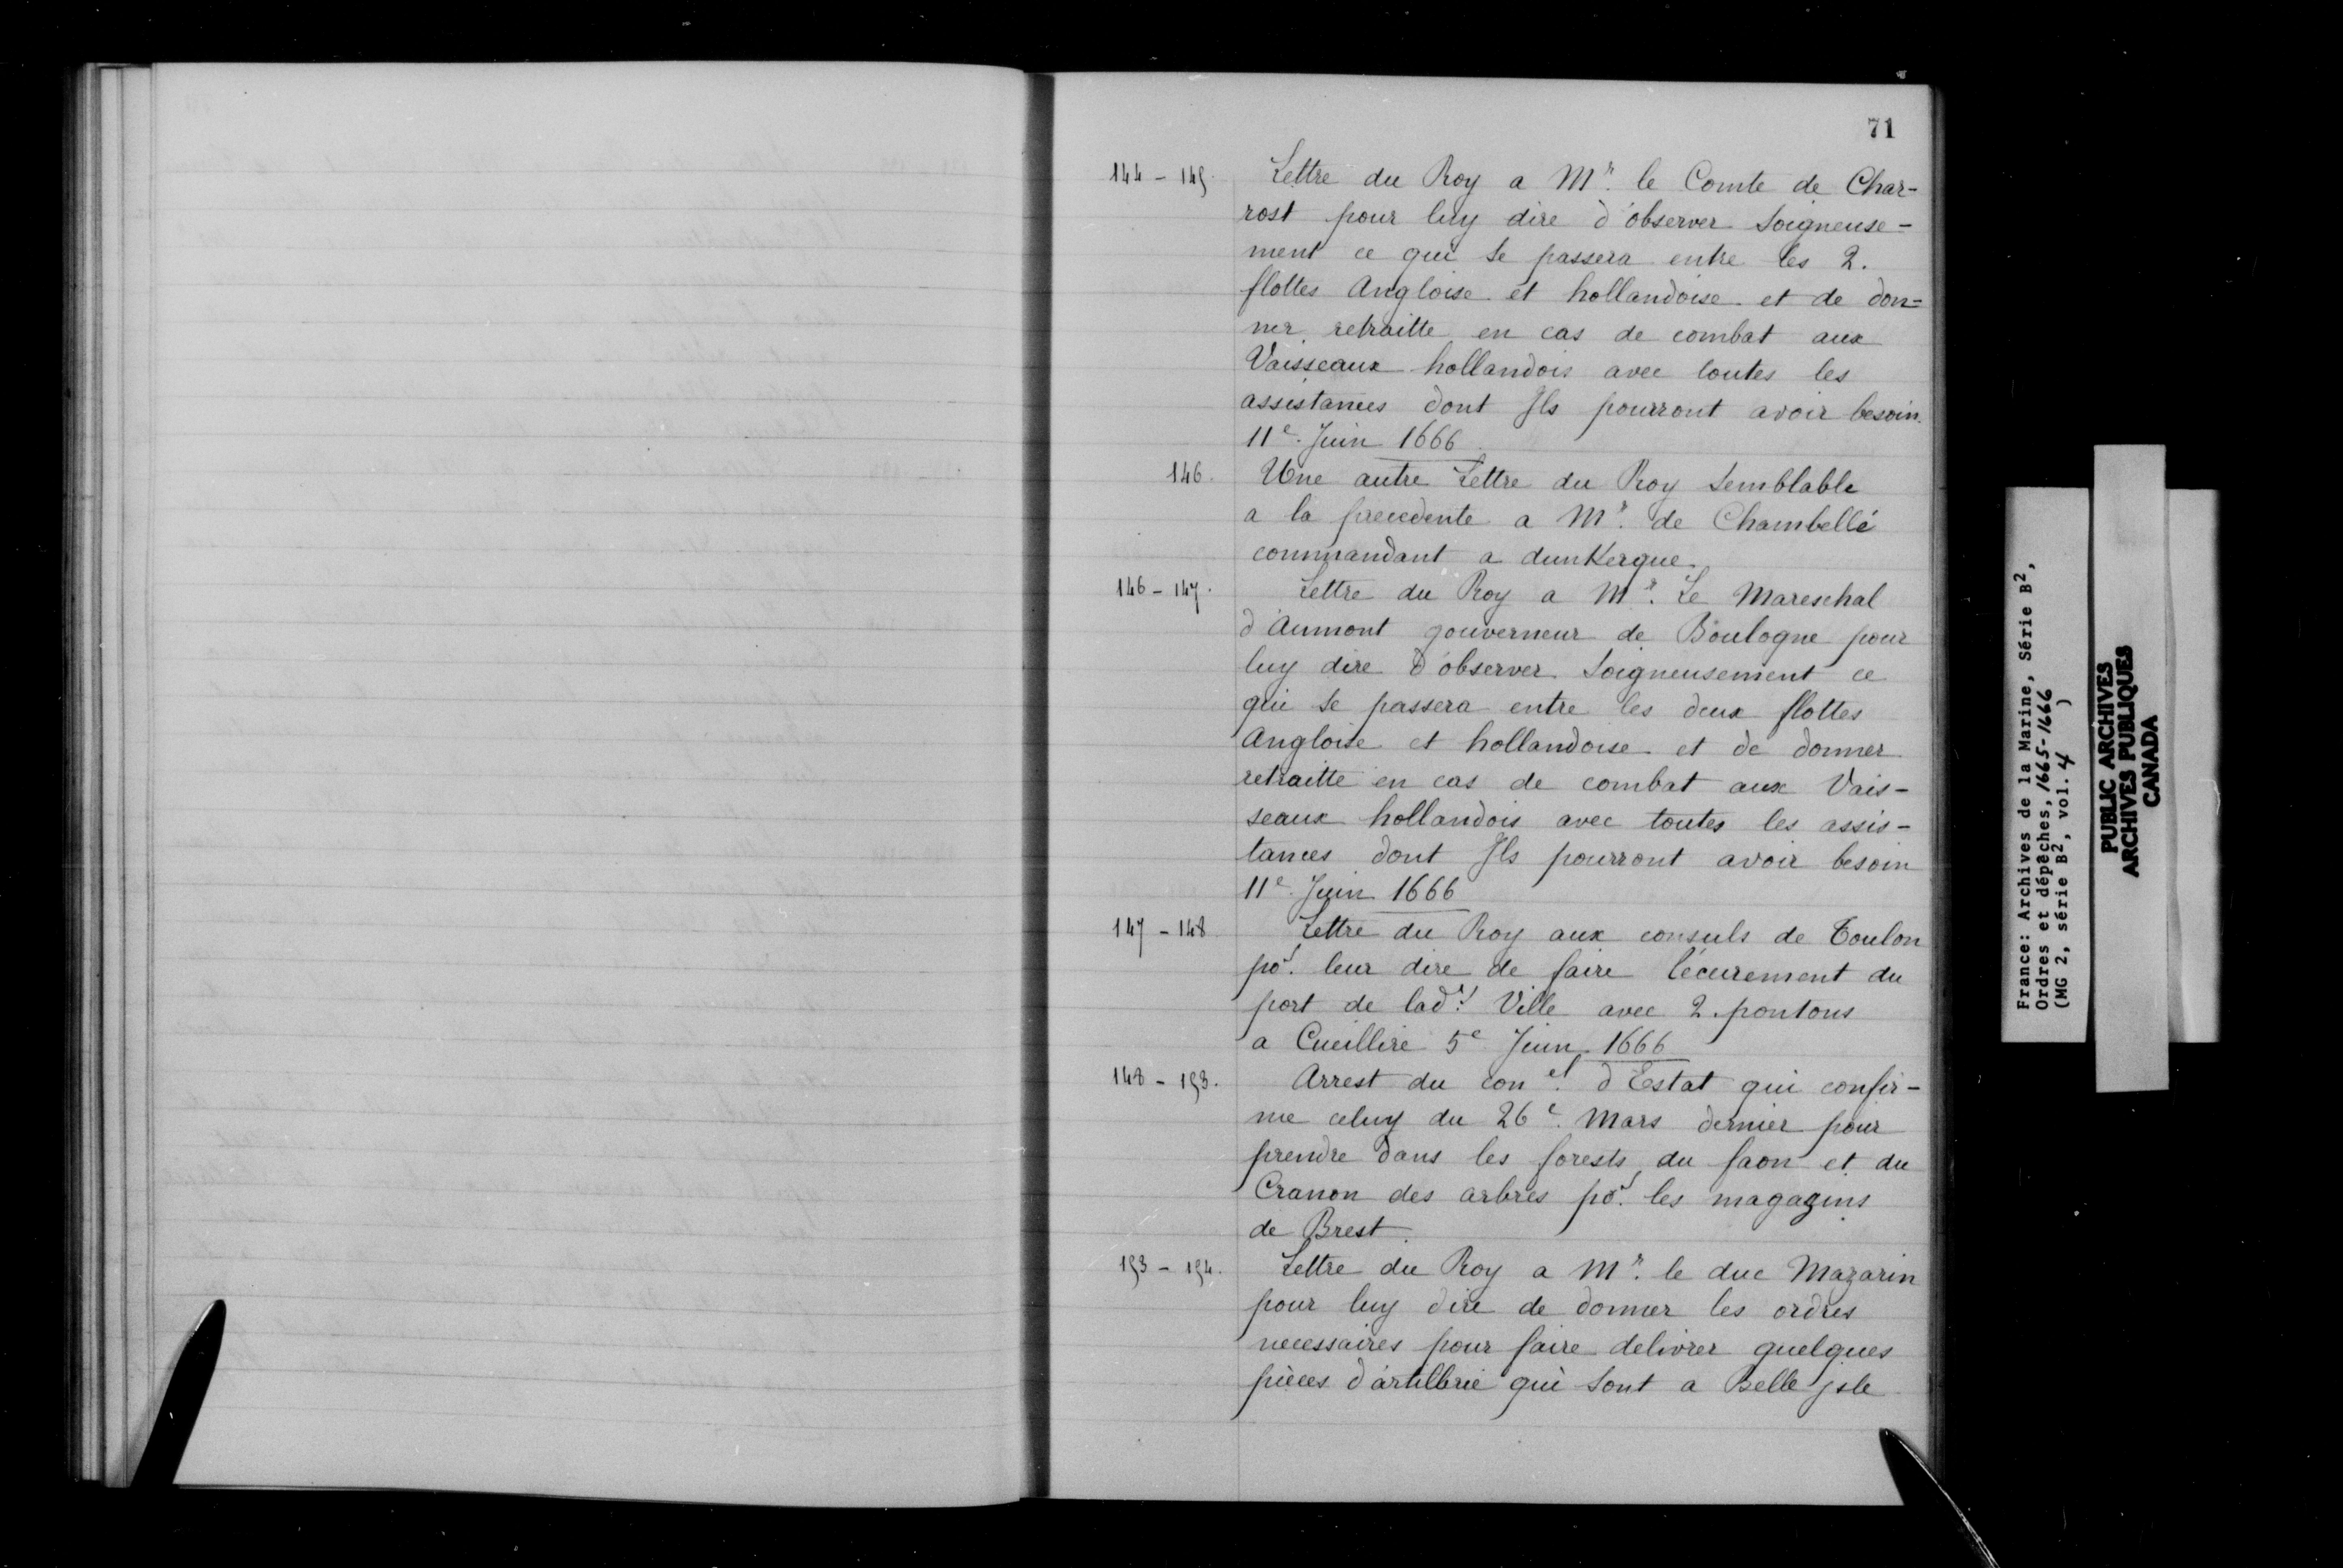 71
144 - 145. Lettre du Roy a Mr. le Comte de Char-
rost pour luy dire d'observer soigneuse-
ment ce qui se passera entre les 2.
flottes Angloise et hollandoise et de don=
ner retraitte en cas de combat aux
Vaisseaux hollandois avec toutes les
assistances dont Ils pourront avoir besoin.
11e. Juin 1666.
146. Une autre Lettre du Roy semblable
a la precedente a Mr. de Chambellé
commandant a dunkerque.
146 - 147. Lettre du Roy a Mr. Le Mareschal
d'Aumont gouverneur de Boulogne pour
luy dire d'observer soigneusement ce
qui se passera entre les deux flottes
Angloise et hollandoise et de donner
retraitte en cas de combat aux Vais-
seaux hollandois avec toutes les assis-
tances dont Ils pourront avoir besoin
11e. Juin 1666
147 - 148 Lettre du Roy aux consuls de Toulon
por. leur dire de faire l'écurement du
port de ladt. Ville avec 2. pontons
a Cueillire 5e Juin 1666
148 - 153. Arrest du conel. d'Estat qui confir-
me celuy du 26e. Mars dernier pour
prendre dans les forests du faon et du
Cranon des arbres por. les magazins
de Brest.
153 - 154. Lettre du Roy a Mr. le duc Mazarin
pour luy dire de donner les ordres
necessaires pour faire delivrer quelques
pièces d'artillerie qui sont a Belle jsle
France: Archives de la Marine, Série B2,
Ordres et dépêches, 1665-1666
(MG 2, série B2, vol. 4 )
PUBLIC ARCHIVES
ARCHIVES PUBLIQUES
CANADA